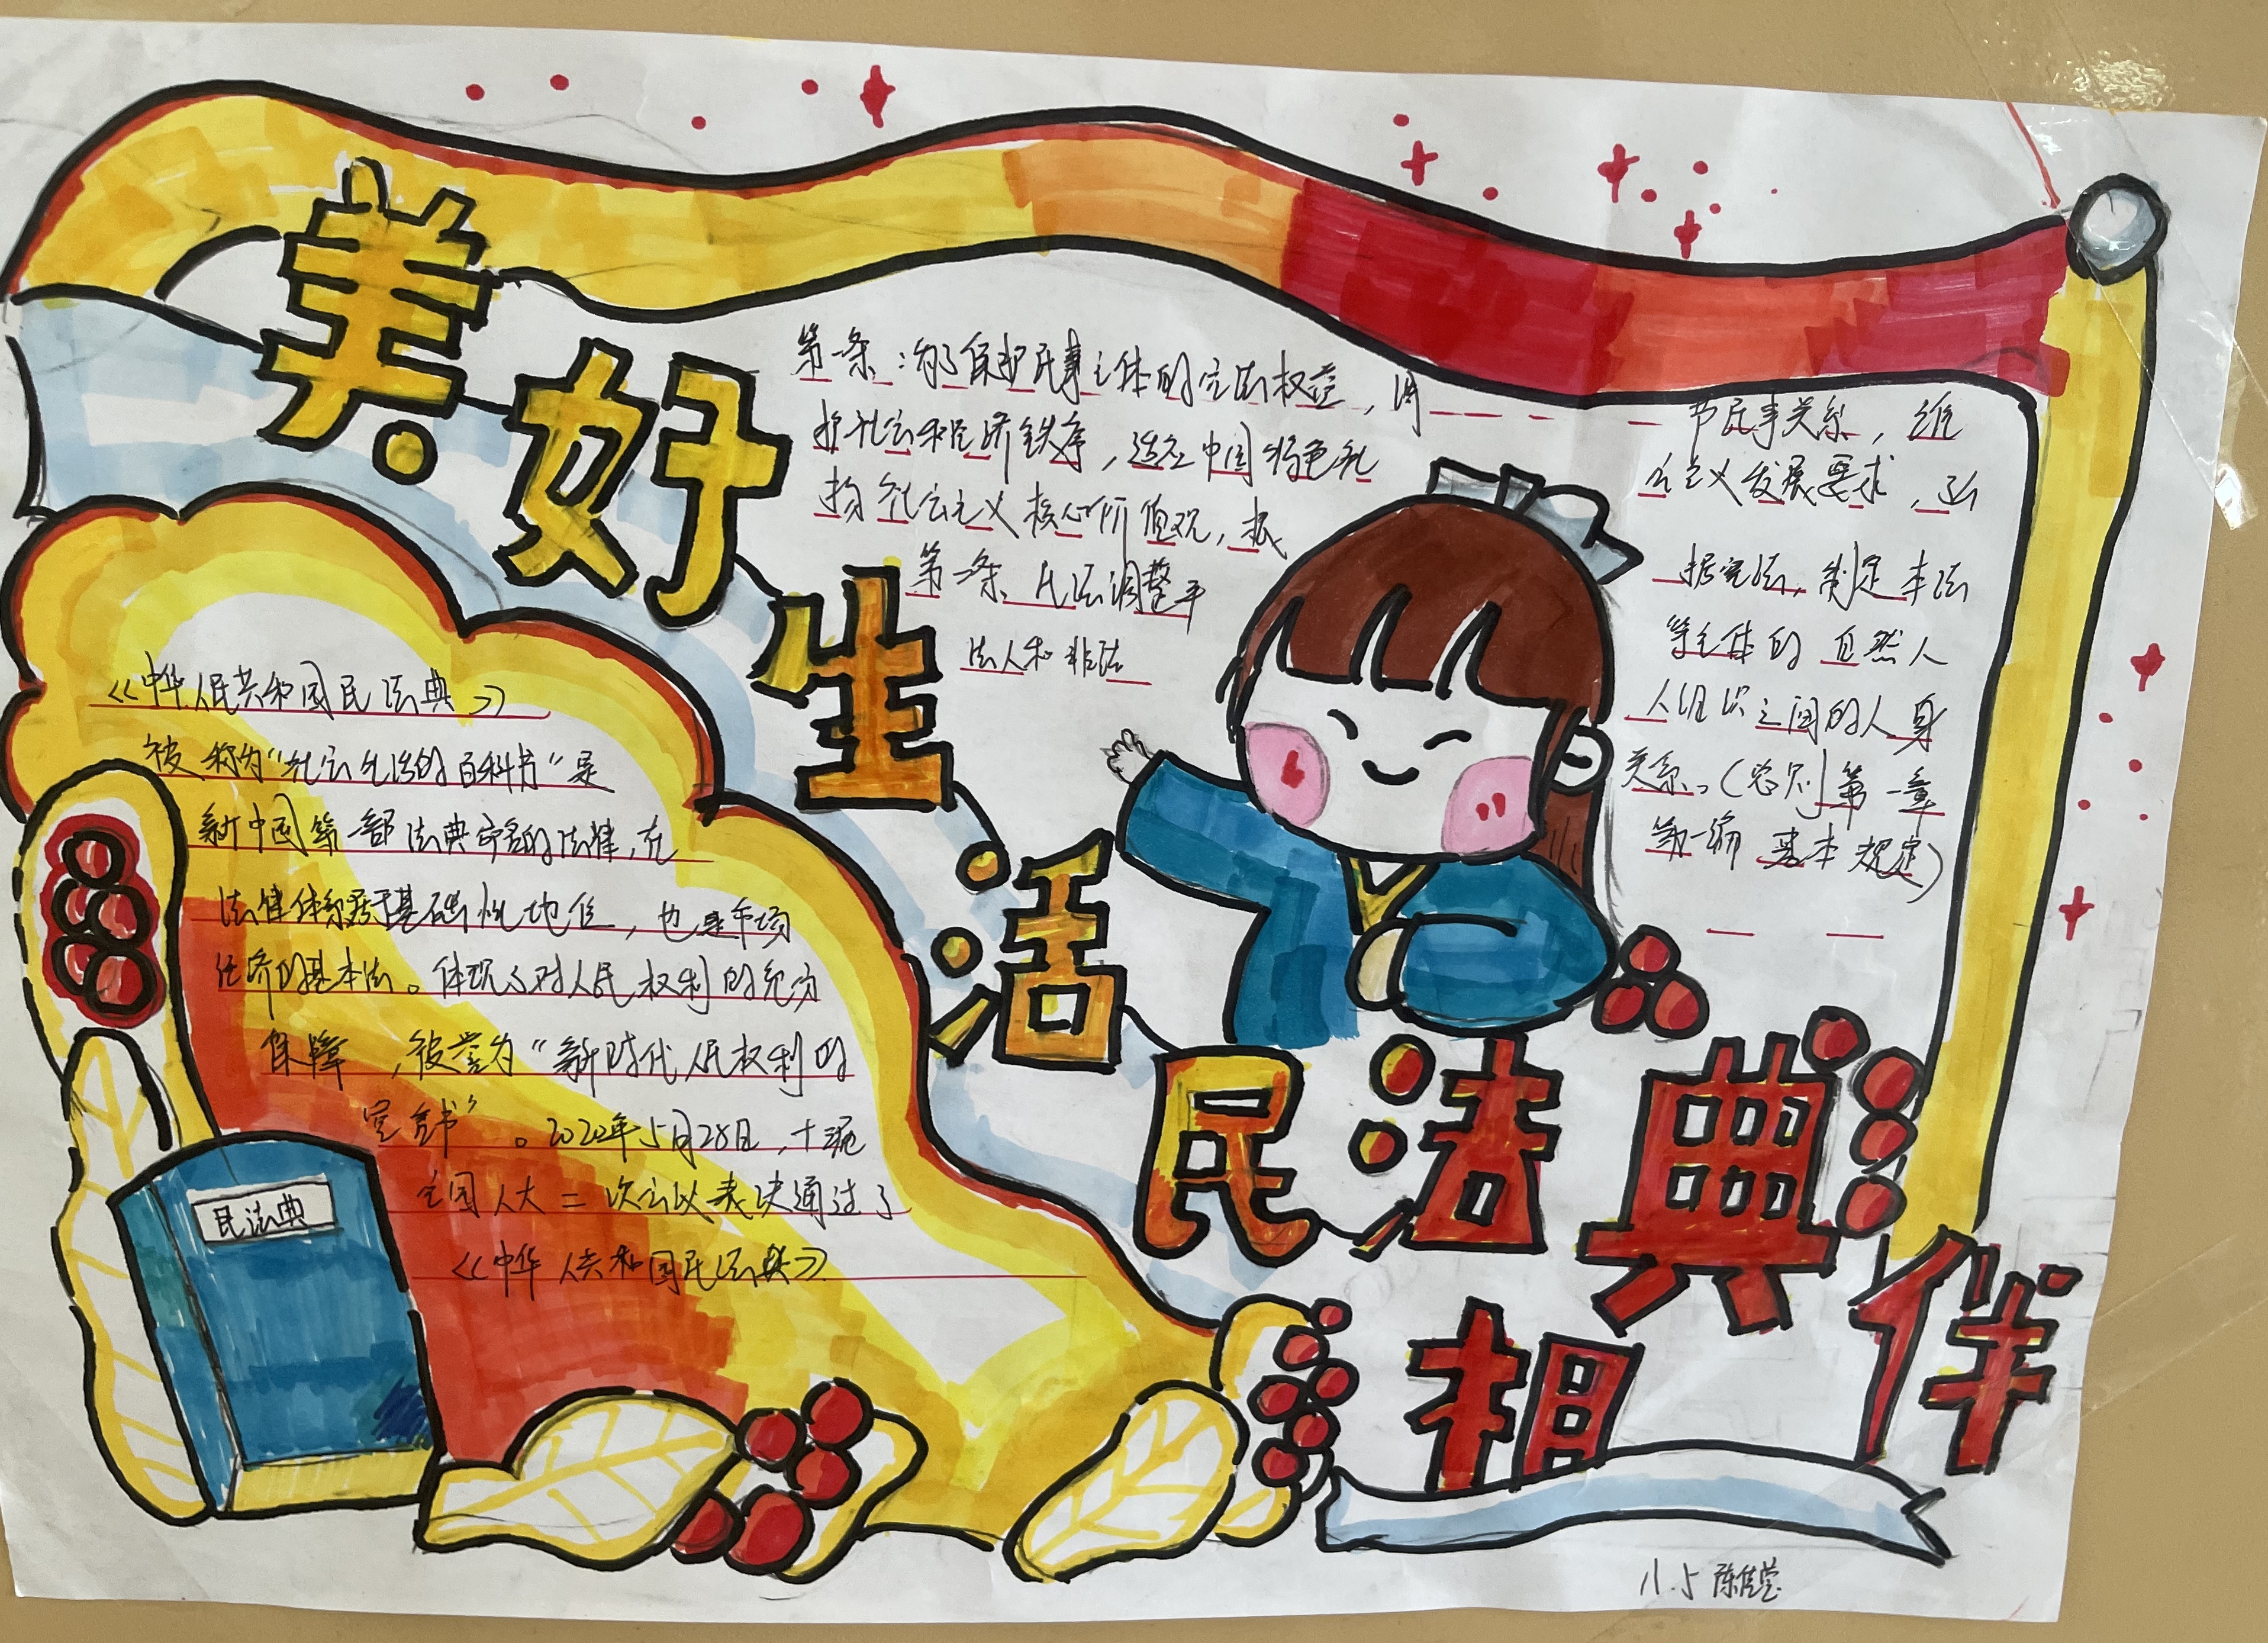 美好生活
民法典
相伴
第一条：为了保护民事主体的合法权益，调节民事关系，维
护社会和经济秩序，适应中国特色社会主义发展要求，弘
扬社会主义核心价值观，根据宪法，制定本法
第二条 民法调整平等主体的自然人
法人和非法人组织之间的人身
关系。（总则 第一章
第一编 基本规定）
《中华人民共和国民法典》
被称为“社会生活的百科书”是
新中国第一部法典命名的法律，在
法律体系居于基础性地位，也是市场
经济的基本法。体现了对人民权利的充分
保障，被誉为“新时代人民权利的
宣言书”。2020年5月28日，十三届
全国人大二次会议表决通过了
《中华人共和国民法典》
民法典
八.5 陈佳莹